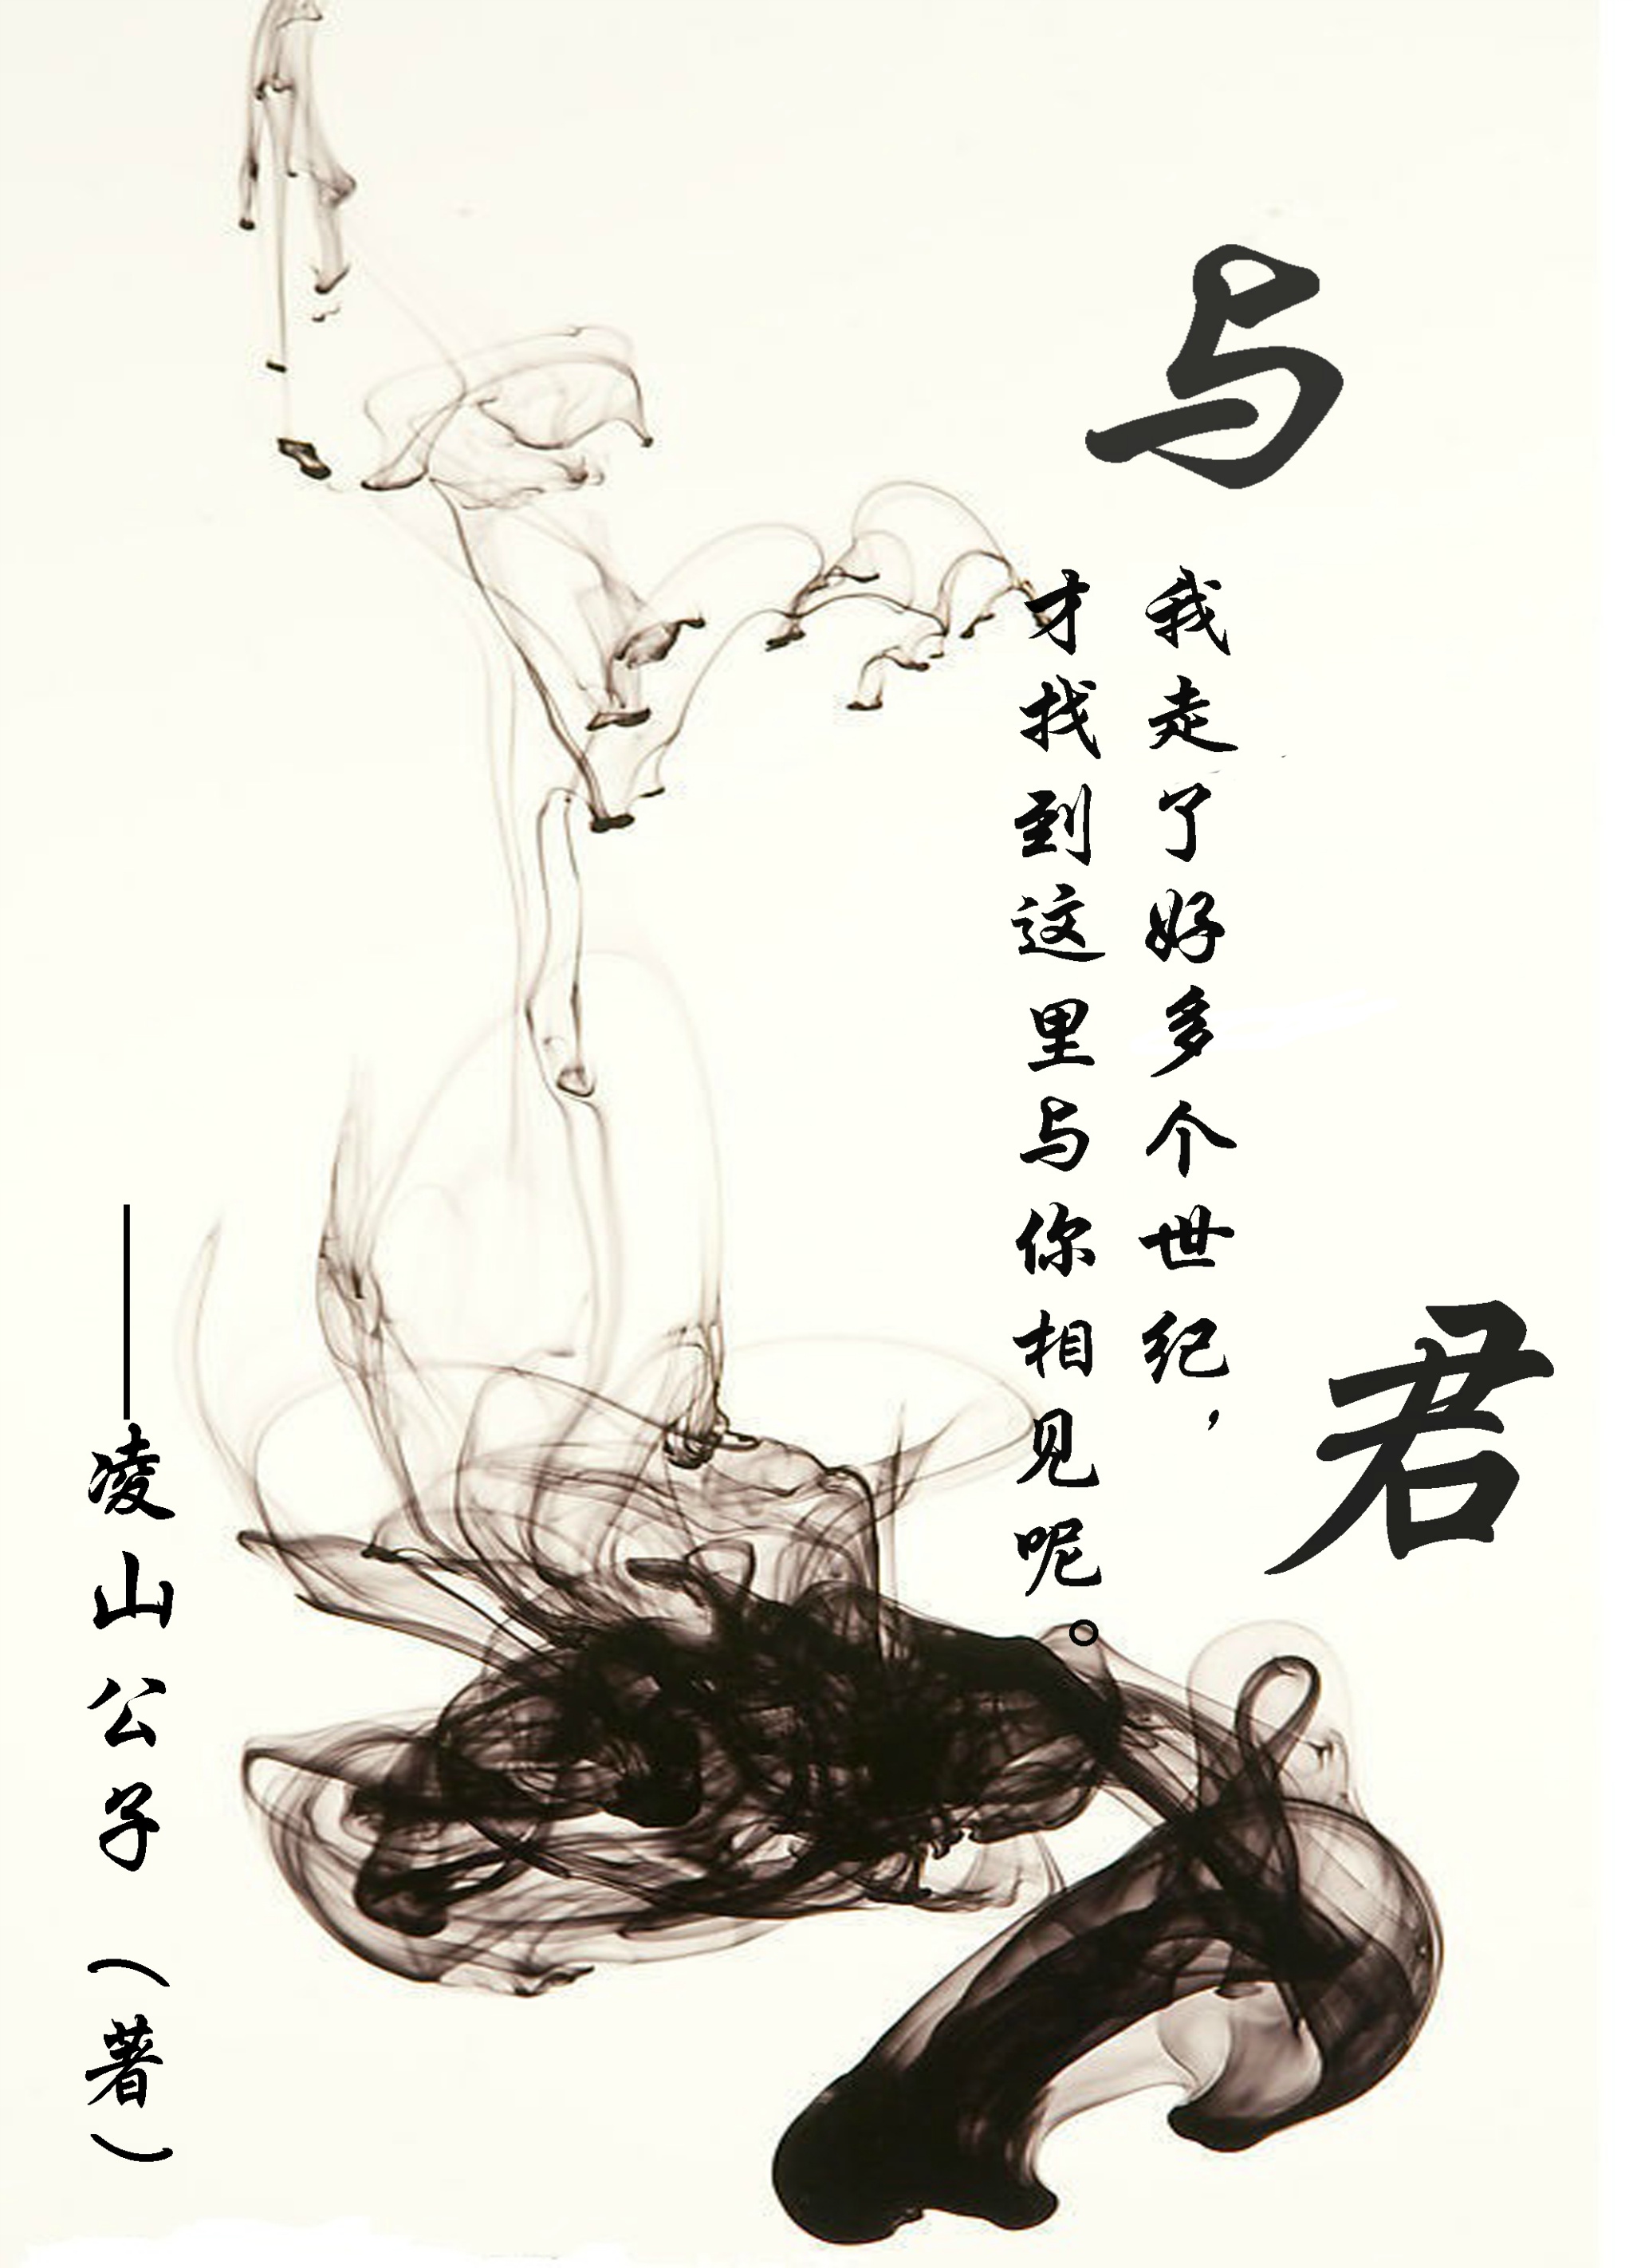 与
君
我走了好多个世纪，
才找到这里与你相见呢。
——凌山公子（著）